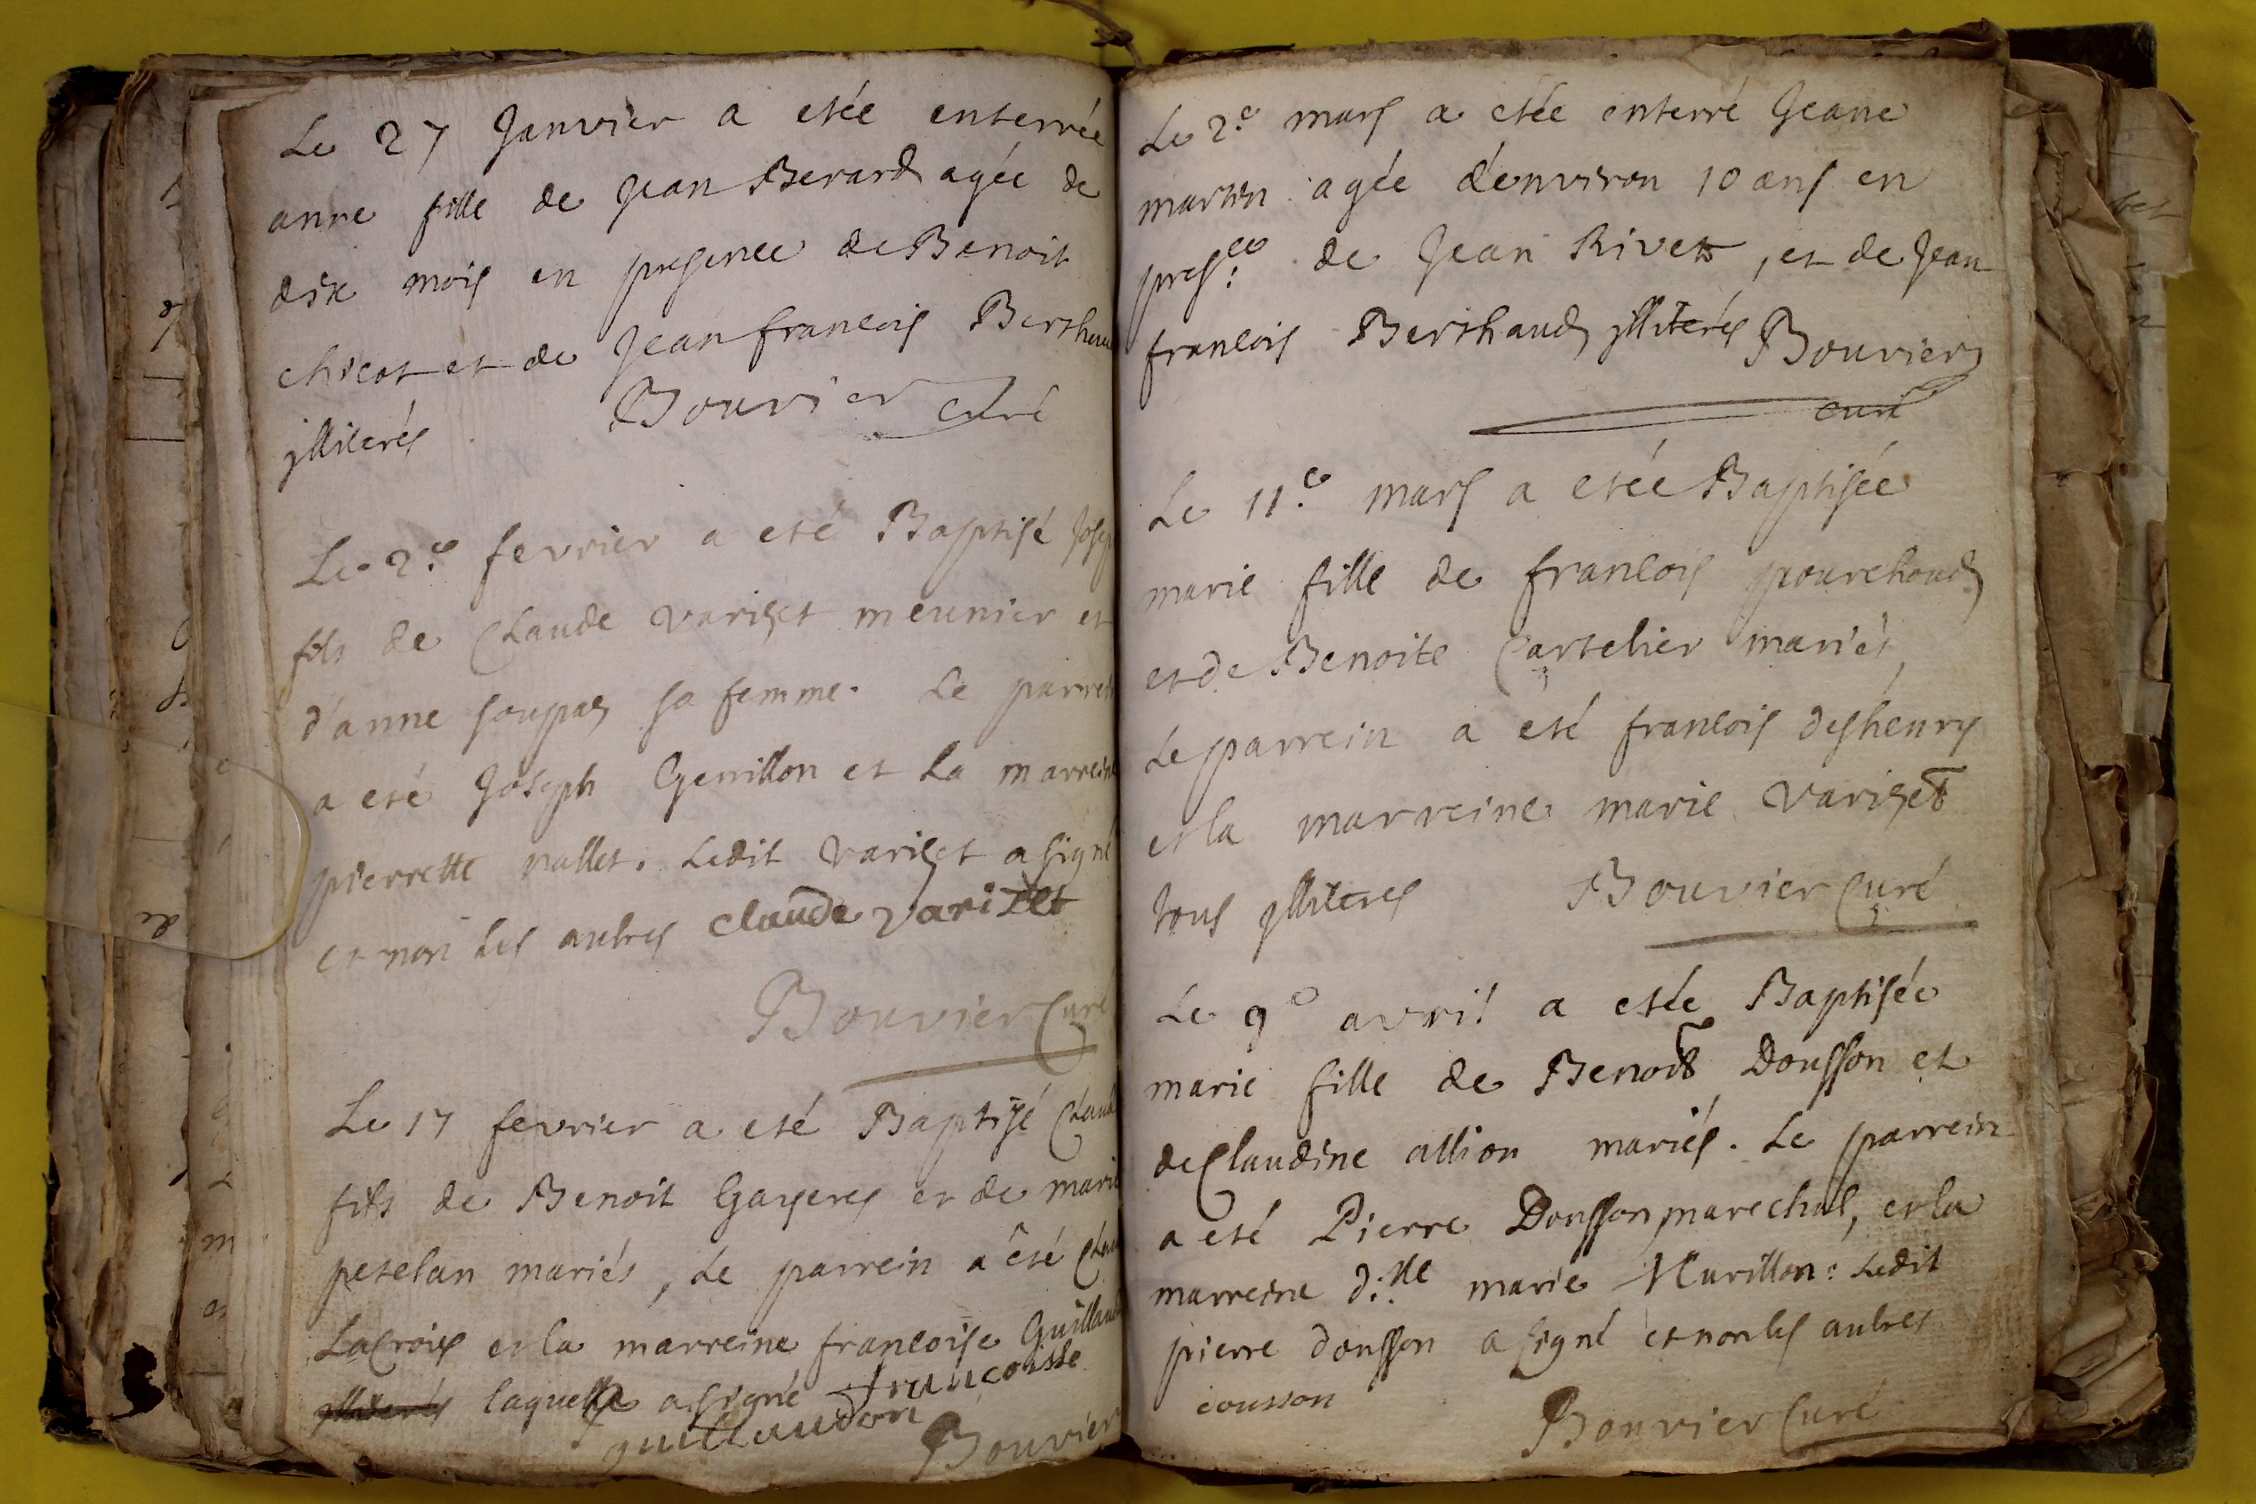 Le 27 Janvier a etée enterrée
anne fille de Jean Berard agée de
dix mois en presence de Benoit
chicot et de Jean francois Berthau
jlliterés Bouvier curé
Le 2.e fevrier a eté Baptisé Josep
fils de Claude varizet meunier et
d'anne soupas sa femme. Le parrein
a eté Joseph Genillon et la marreine
pierrette nallet. Ledit varizet a signé
et non les autres claude varizet
Bouvier Curé
Le 17 fevrier a eté Baptisé Claude
fils de Benoit Gayeres et de marie
petelan mariés, Le parrein a êté Clau
LaCroix et la marreine francoise Guillaud
jlliterés laquelle a signé francoisse
guillaudon Bouvier
Le 2.e mars a etée enterré Jeane
martin agée d'environ 10 ans en
presce: de Jean Rivet, et de Jean
francois Berthaud jlliterés Bouvier
curé
Le 11.e mars a etée Baptisée
marie fille de francois pourchoud
et de Benoite Cartelier mariés,
Le parrein a eté francois deshenrys
et la marreine marie varizet
tous jlliterés Bouvier Curé
Le 9e avril a etée Baptisée
marie fille de Benoit Dousson et
de Claudine allion mariés. Le parrein
a eté Pierre Dousson marechal, et la
marreine d:lle marie Murillon: Ledit
pierre dousson a signé et non les autres
cousson
Bouvier Curé